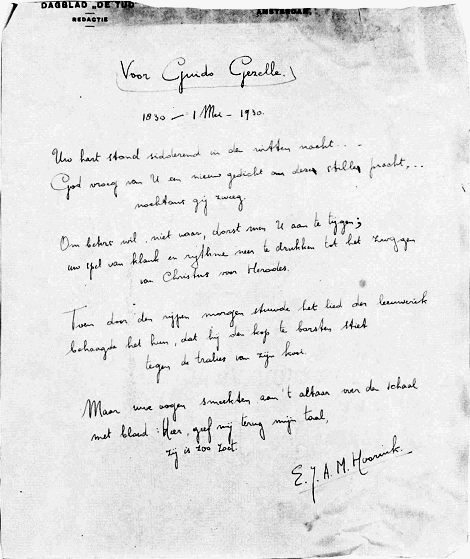 DAGBLAD „DE TIJD
REDACTIE
AMSTERDAM,
Voor Guido Gezelle.
1830 – 1 Mei – 1930.
Uw hart stond sidderend in de witten nacht...
God vroeg van U en nieuw gedicht om deze stille pracht,..
nochtans gij zweeg.
Om wil, niet waar, dorst men U aan te tijgen;
uw spel van klank en rythme neer te drukken tot het zwijgen
van Christus voor Herodes.
Toen door den rijpen morgen stuwde het lied der leeuwerik
behaagde het hun, dat hij den kop te barsten stiet
tegen de tralies van zijn kooi.
Maar uwe oogen smeekten aan 't altaar over de schaal
met bloed: Heer, geef mij terug mijn taal,
zij is zoo zoet.
E.J.A.M.